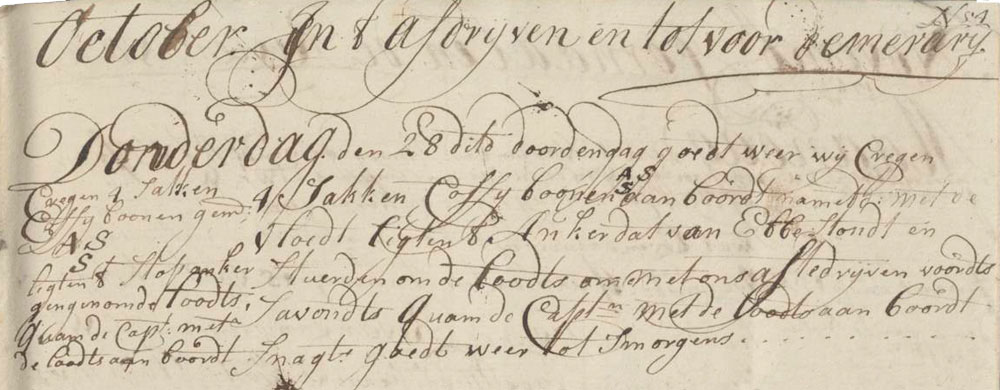 N 81
October In & afdrijven en tot voor demerarij
Donderdag den 28 dito doordendag goedt weer wij Cregen
4 Sakken Coffy boonen AS S aan boordt namidd: met de
vloedt ligten & Anker dat van Ebbe stondt en
stuerden om de loodts om met ons af te drijven voordts
savondts quam de Captn met de loodts aan boordt
Snagts goedt weer tot Smorgens . . . . . . . . . .
Cregen 4 Sakken
Coffy boonen gem:
AS
S
ligten & Stopanker
gengen om de loodts;
quam de Capt: met
de loodts aan boordt